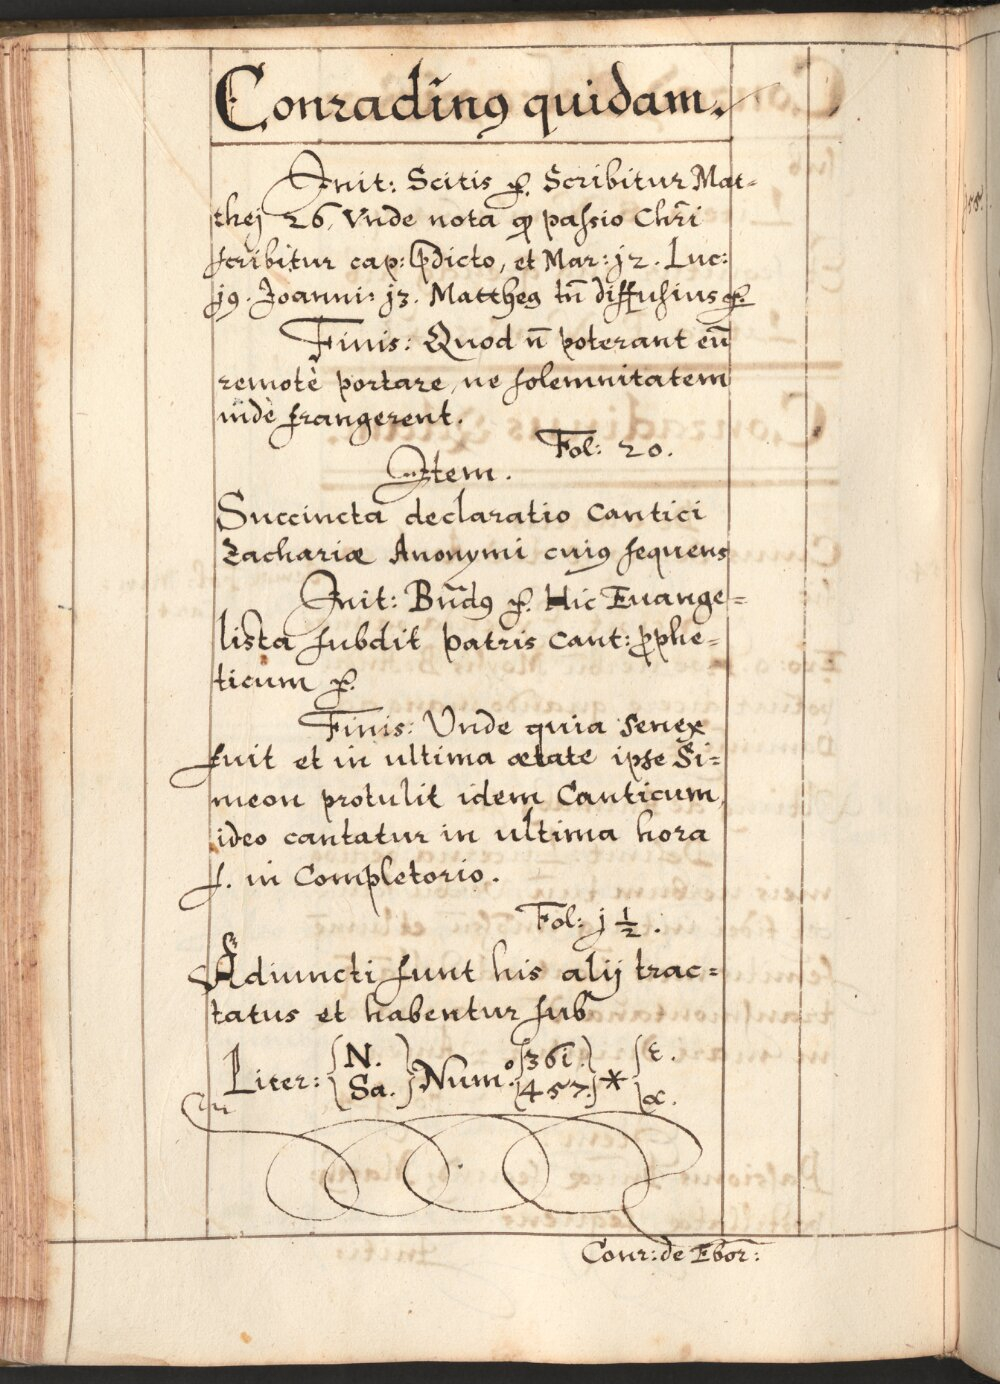 Conradinꝰ quidam.
Init: Scitis ꝛc. Scribitur Mat=
thej 26. Vnde nota ꝙ passio Chr̄i
scribitur cap: p̄dicto, et Mar: j2. Luc:
j9. Joanni: j3. Mattheꝰ tn̄ diffusius ꝛc.
Finis: Quod n̄ poterant eū
remotè portare, ne solemnitatem
indè frangerent.
Fol: 20.
Item.
Succincta declaratio Cantici
Zachariæ Anonymi cuiꝰ sequens
Init: Bn̄dꝰ ꝛc. Hic Euange=
lista subdit patris cant: ꝓphe=
ticum ꝛc.
Finis: Unde quia senex
fuit et in ultima ætate ipse Si=
meon protulit idem Canticum,
ideo cantatur in ultima hora
s. in Completorio.
Fol: j ½.
Adiuncti sunt his alij trac=
tatus et habentur sub
Liter: { N. } Num.º { 36i. } * { ε.
{ Sa. } { 457. } { α.
Conr: de Ebor: